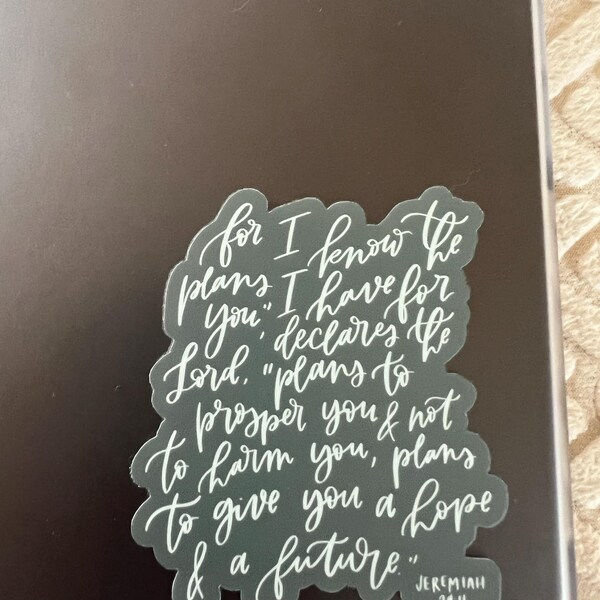 for I know the
plans I have for
you", declares the
Lord, "plans to
prosper you & not
to harm you, plans
to give you a hope
& a future."
JEREMIAH
29:11